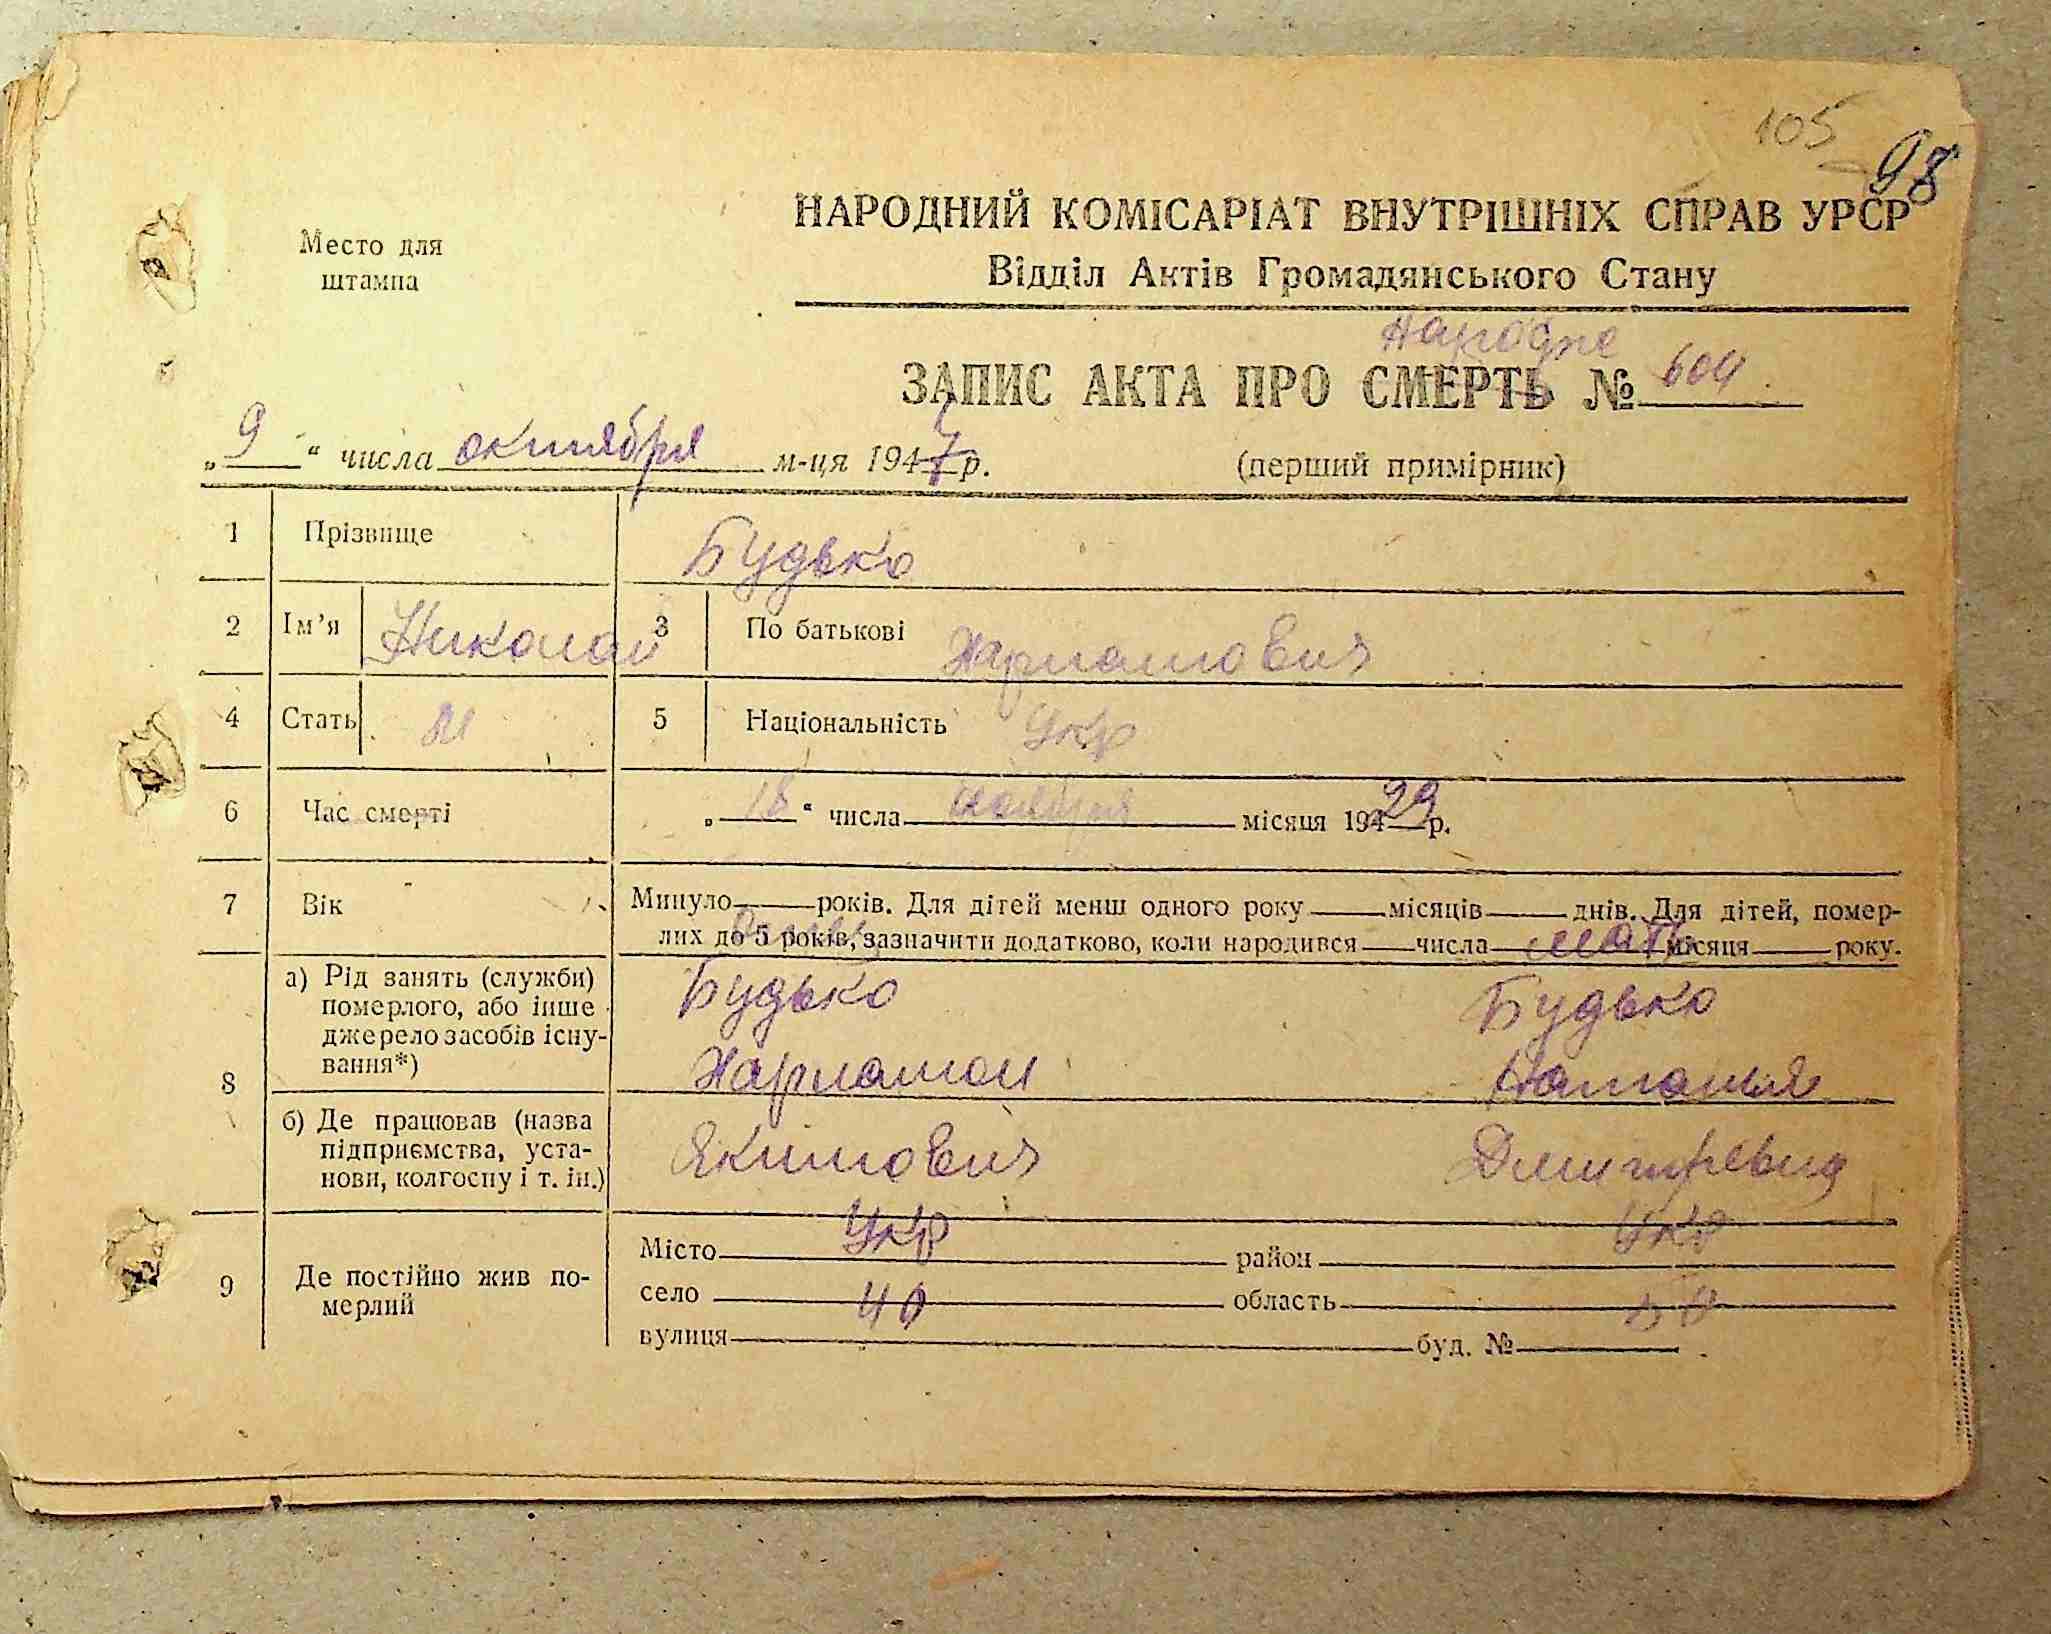 105
98
Место для
штампа
НАРОДНИЙ КОМІСАРІАТ ВНУТРІШНІХ СПРАВ УРСР
Відділ Актів Громадянського Стану
ЗАПИС АКТА ПРО СМЕРТЬ № 604
„9“ числа октября м-ця 1947 р.
(перший примірник)
1 Прізвище Будько
2 Ім’я Николай 3 По батькові Харламович
4 Стать М 5 Національність Укр
6 Час смерті „18“ числа ноября місяця 19429 р.
7 Вік Минуло років. Для дітей менш одного року місяців днів. Для дітей, помер-
лих до 5 років, зазначити додатково, коли народився числа місяця року.
мать
8 а) Рід занять (служби)
померлого, або інше
джерело засобів існу-
вання*)
Будько Будько
Харламон Наталья
б) Де працював (назва
підприємства, уста-
нови, колгоспу і т. ін.)
Якимович
9 Де постійно жив по-
мерлий
Місто Укр район Укр
село 40 область
вулиця буд. №